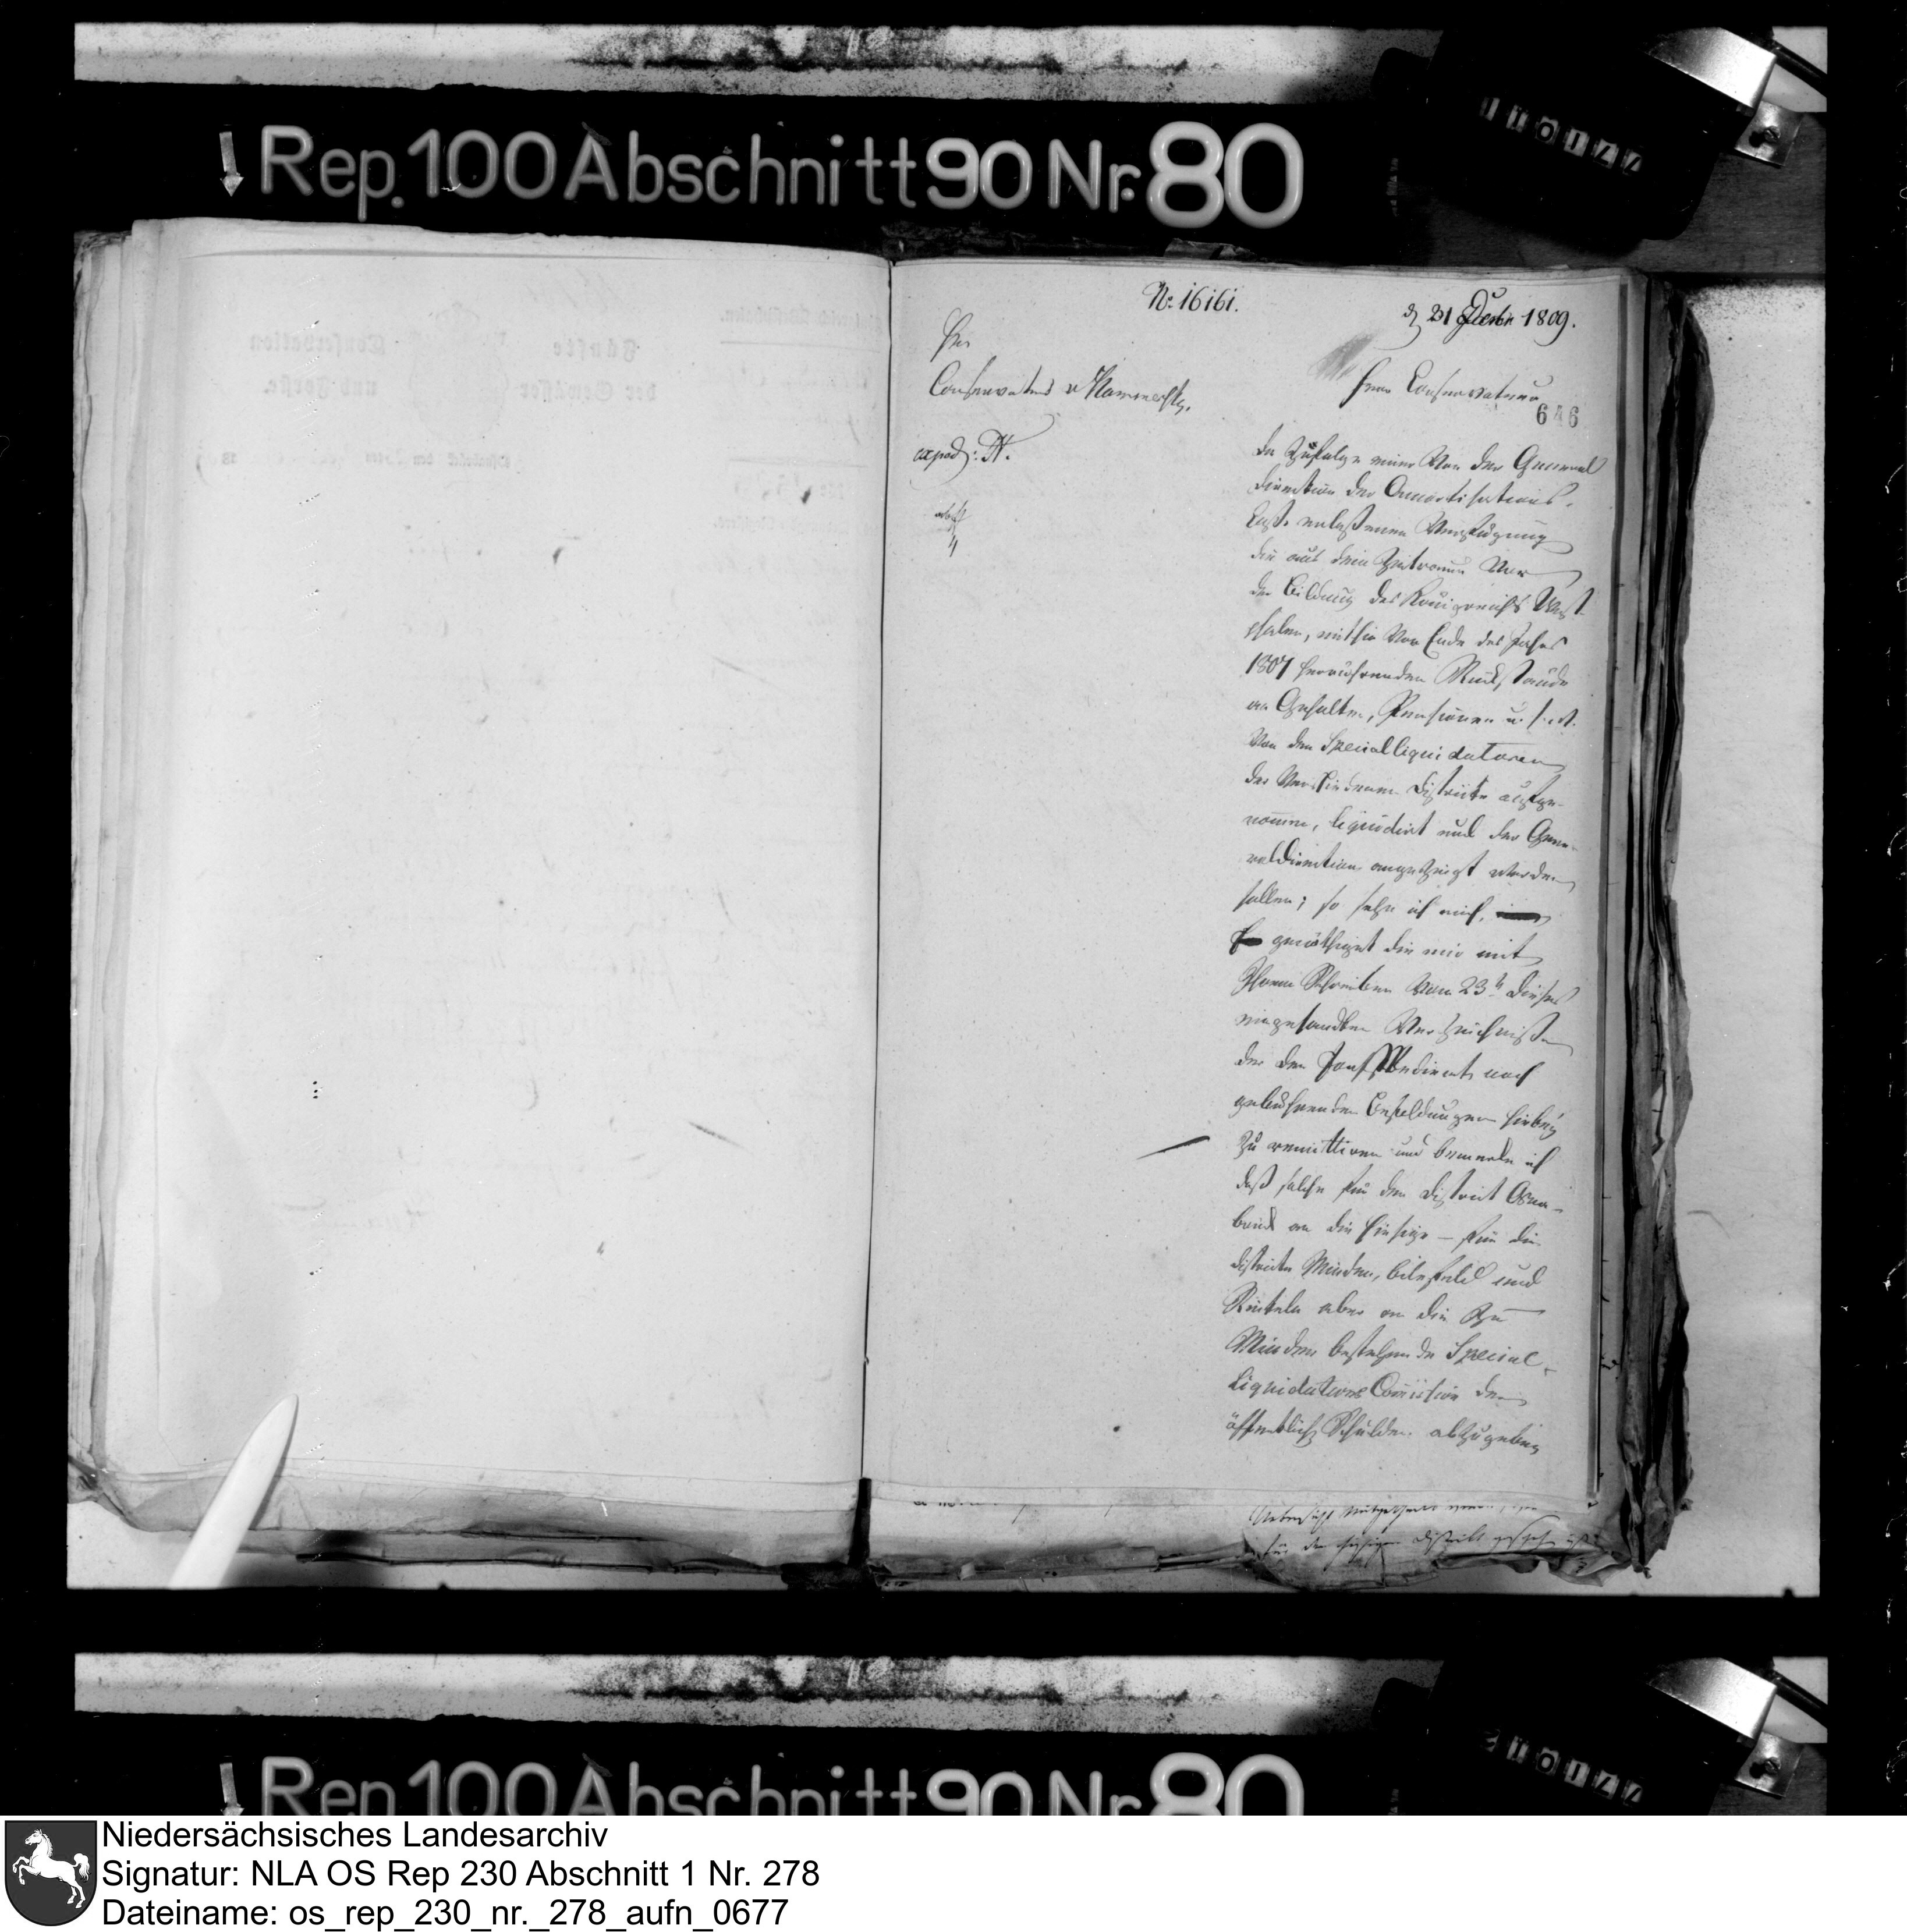 Rep. 100 Abschnitt 90 Nr. 80
No: 16161.
d 31 Decbr 1809.
Herr
Conservateurs v Hammerstein.
Herrn Conservateur
646
exped: W.
Da zufolge einer von der General
Direction der Amortisations-
Casse erlaßenen Verfügung
die aus dem Zeitraume vor
der Bildung des Königreichs West-
phalen, mithin von Ende des Jahrs
1807 herrührenden Rückstände
an Gehalten, Pensionen u. s. w.
von den Specialliquidatoren
der verschiedenen Districte aufge-
nomen, liquidirt und der Gene-
raldirection angezeigt werden
sollen; so sehe ich mich,
genöthiget die mir mit
Ihrem Schreiben vom 23t dieses
eingesandten Verzeichniße
der den Forstbedienten noch
gebührenden Besoldungen hiebey
zu remittiren und bemerke ich
daß solche für den District Osna-
brück an die hiesige — für die
Districte Minden, Bilefeld und
Rinteln aber an die zu
Minden bestehende Special-
Liquidations Comission der
öffentlich Schulden abzugeben
für den hiesigen District
Rep. 100 Abschnitt 90 Nr. 80
Niedersächsisches Landesarchiv
Signatur: NLA OS Rep 230 Abschnitt 1 Nr. 278
Dateiname: os_rep_230_nr._278_aufn_0677